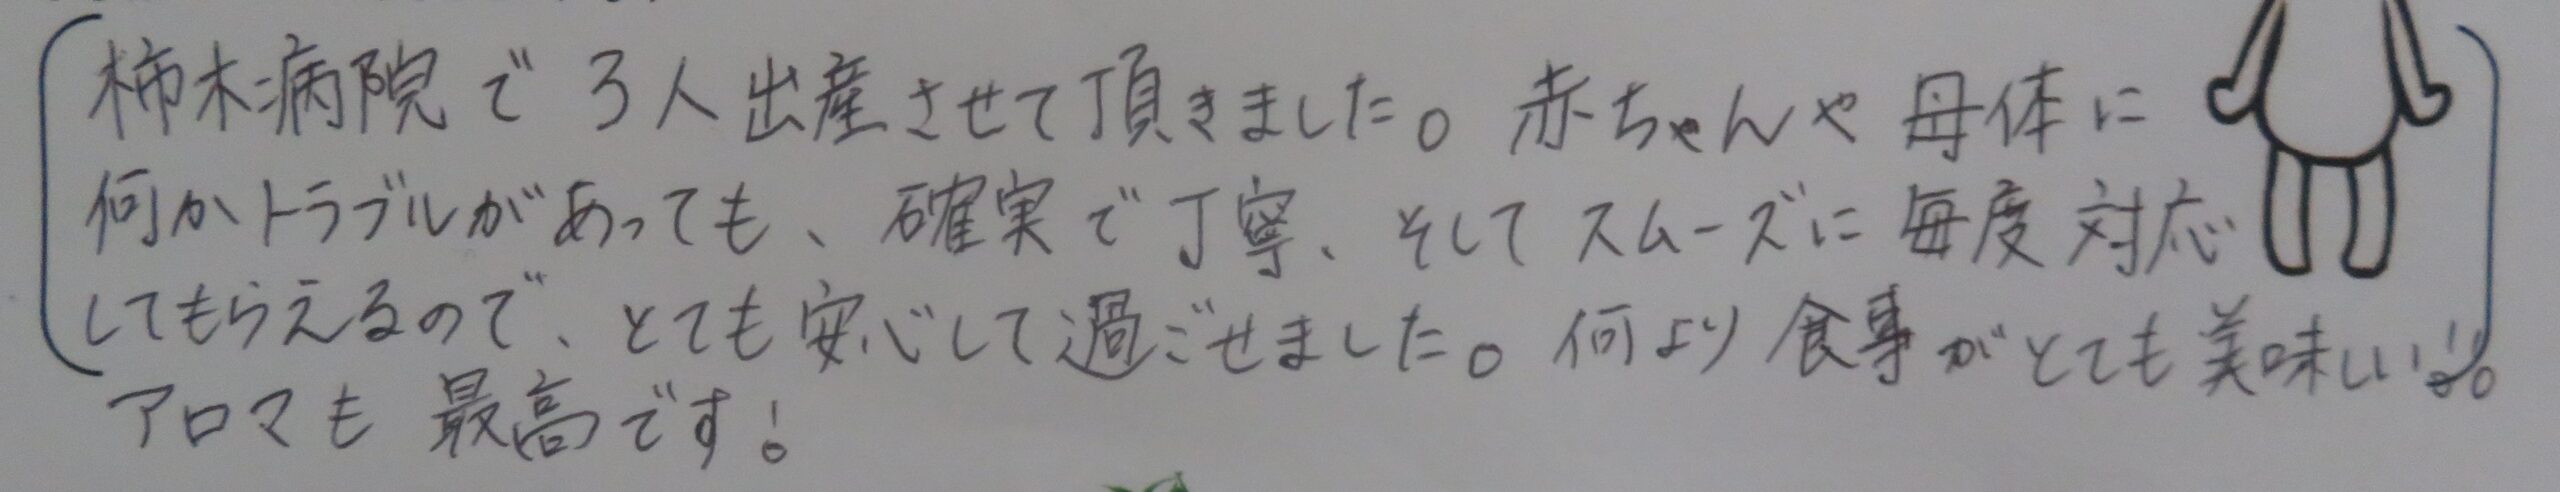 柿木病院で3人出産させて頂きました。赤ちゃんや母体に
何かトラブルがあっても、確実で丁寧、そしてスムーズに毎度対応
してもらえるので、とても安心して過ごせました。何より食事がとても美味しい!!。
アロマも最高です!